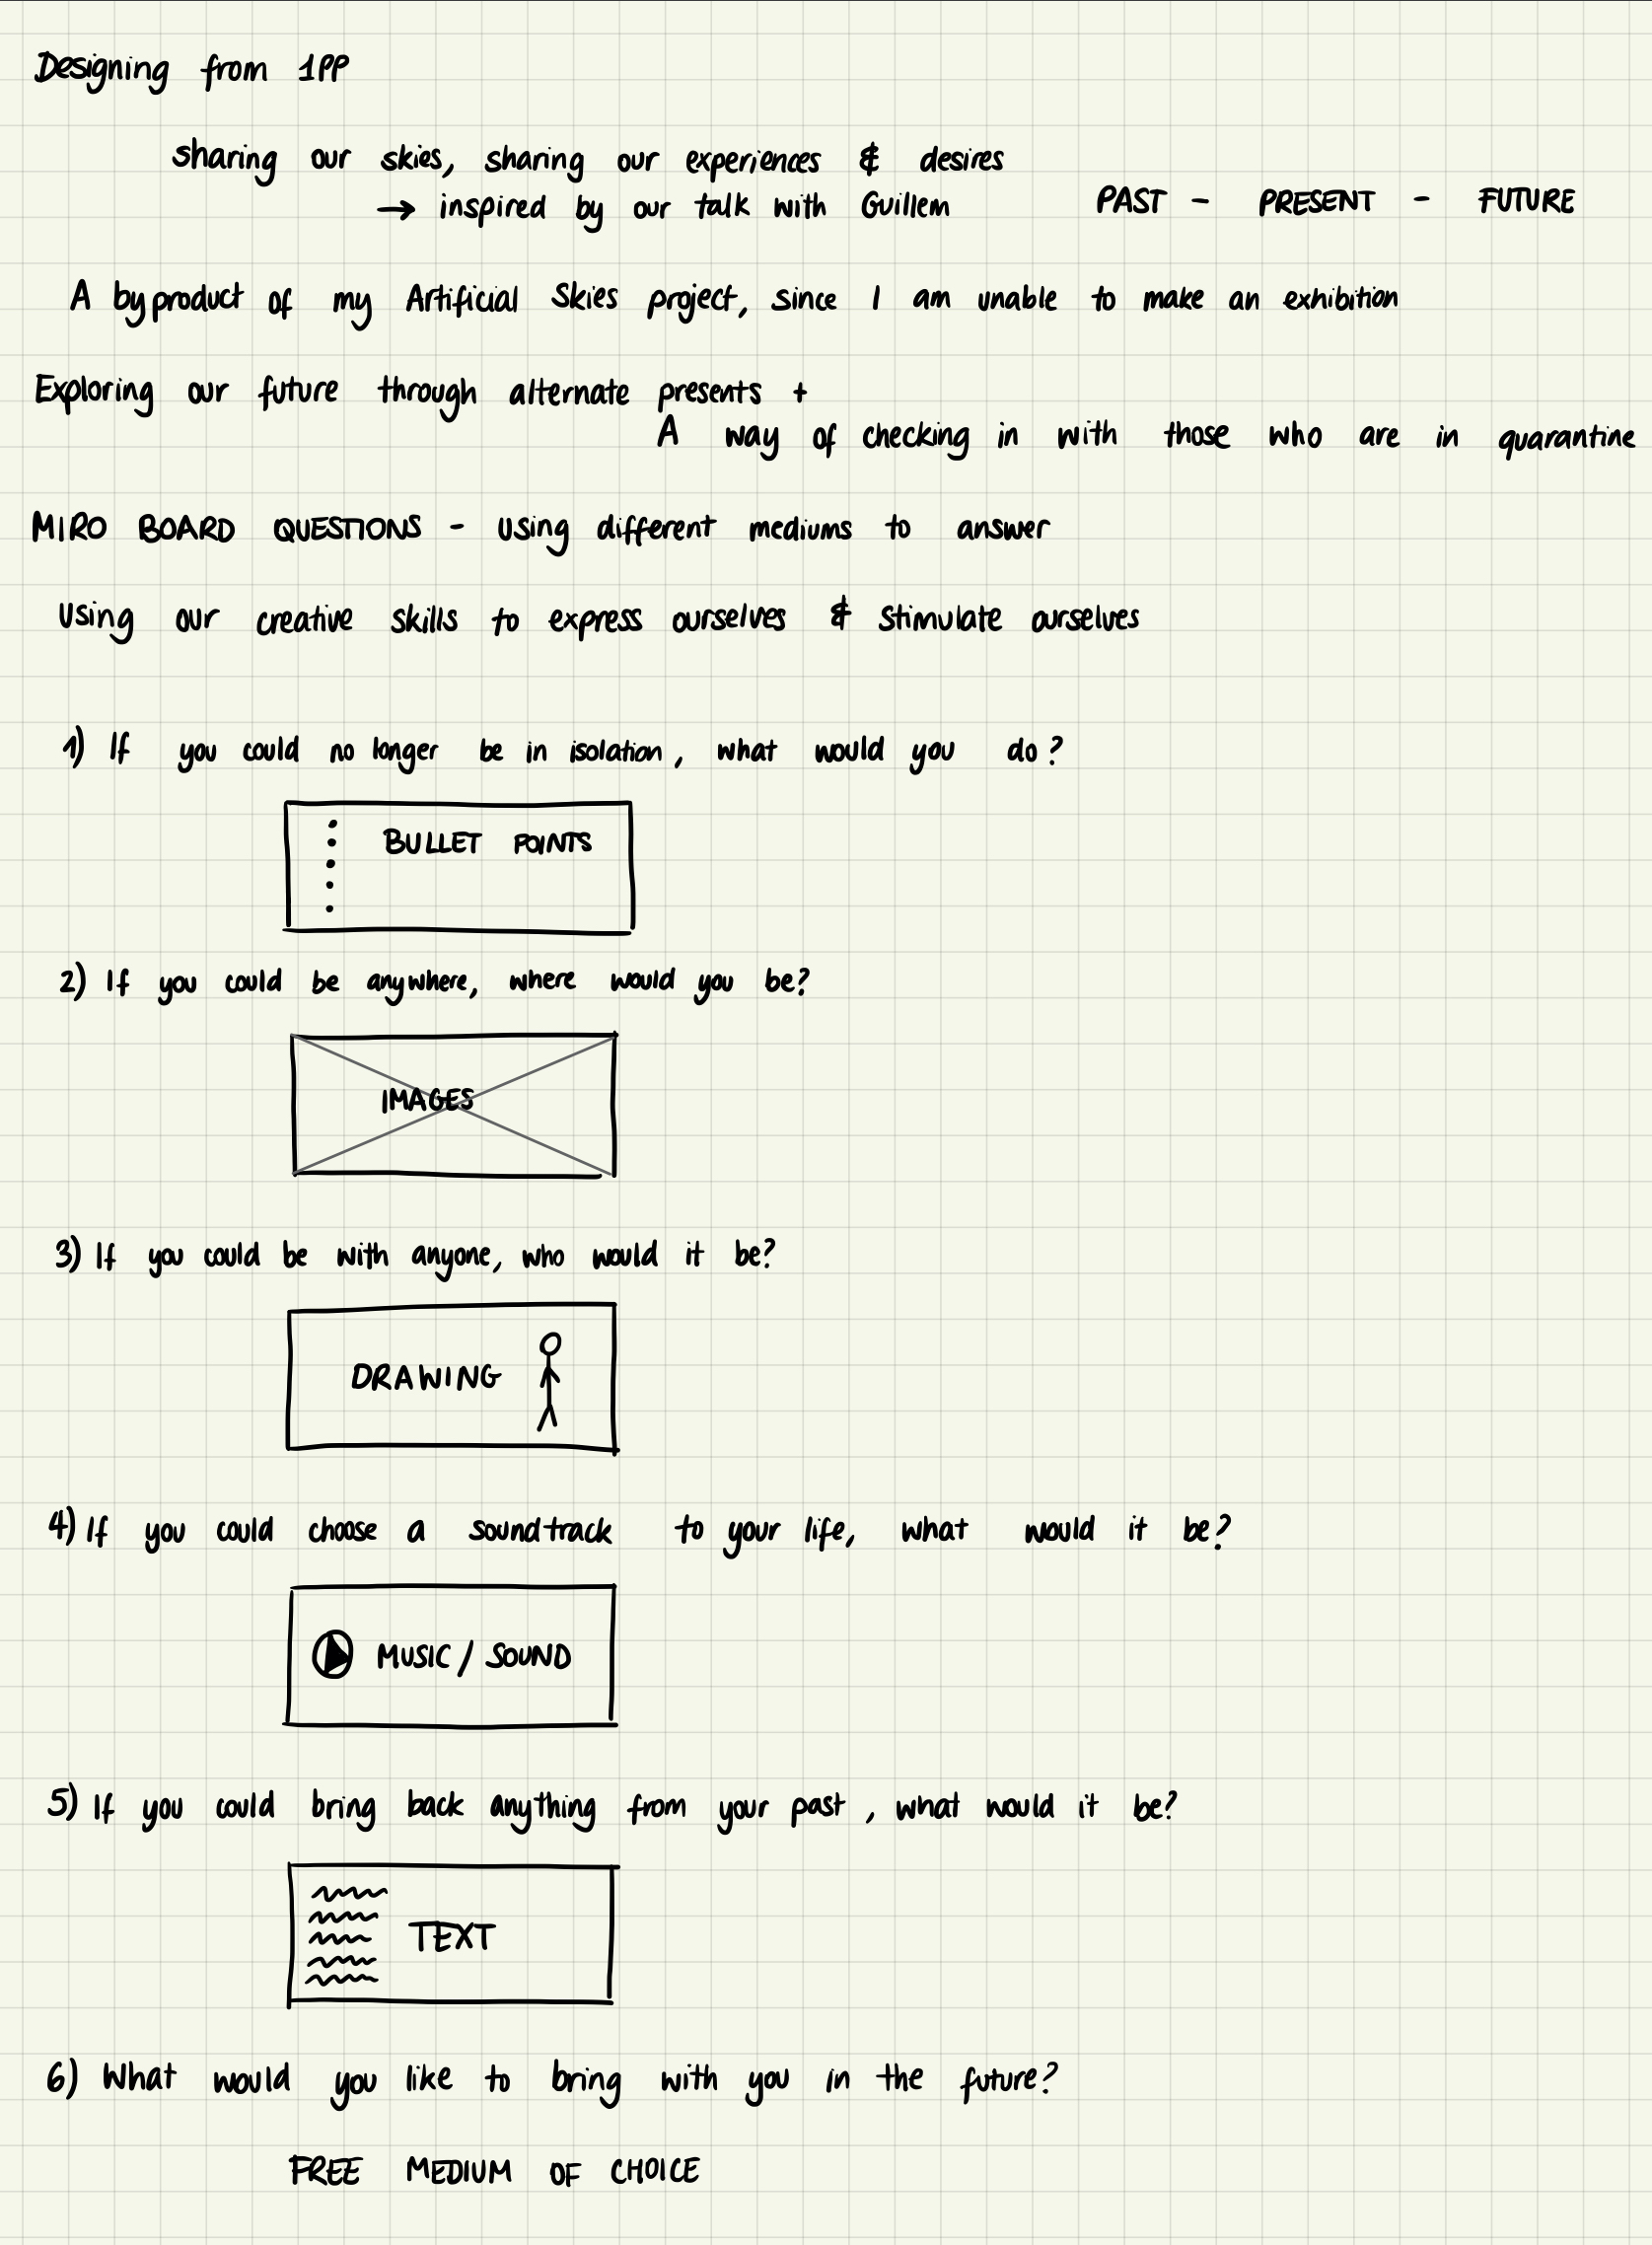 Designing from 1PP
sharing our skies, sharing our experiences & desires
→ inspired by our talk with Guillem
PAST - PRESENT - FUTURE
A byproduct of my Artificial Skies project, since I am unable to make an exhibition
Exploring our future through alternate presents +
A way of checking in with those who are in quarantine
MIRO BOARD QUESTIONS - using different mediums to answer
Using our creative skills to express ourselves & stimulate ourselves
1) If you could no longer be in isolation, what would you do?
BULLET POINTS
2) If you could be anywhere, where would you be?
IMAGES
3) If you could be with anyone, who would it be?
DRAWING
4) If you could choose a soundtrack to your life, what would it be?
MUSIC / SOUND
5) If you could bring back anything from your past, what would it be?
TEXT
6) What would you like to bring with you in the future?
FREE MEDIUM OF CHOICE